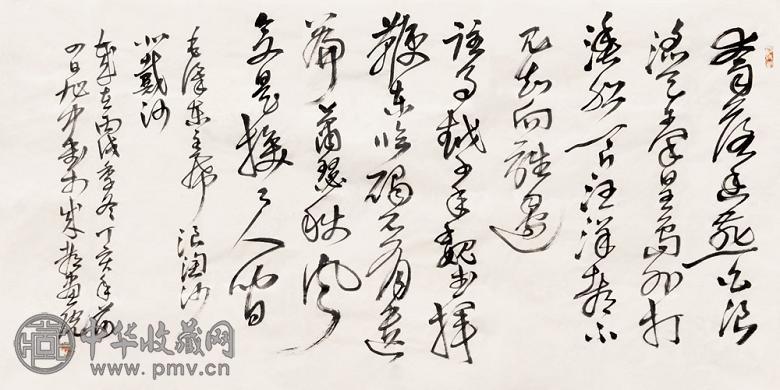 大雨落幽燕白浪
滔天秦皇岛外打
渔船一片汪洋都不
见知向谁边
往事越千年魏武挥
鞭东临碣石有遗
篇萧瑟秋风
今又是换了人间
毛泽东主席 浪淘沙
北戴河
岁在丙戌季冬丁亥年前
四日旭中书于成都画院
中华收藏网
www.pmv.cn